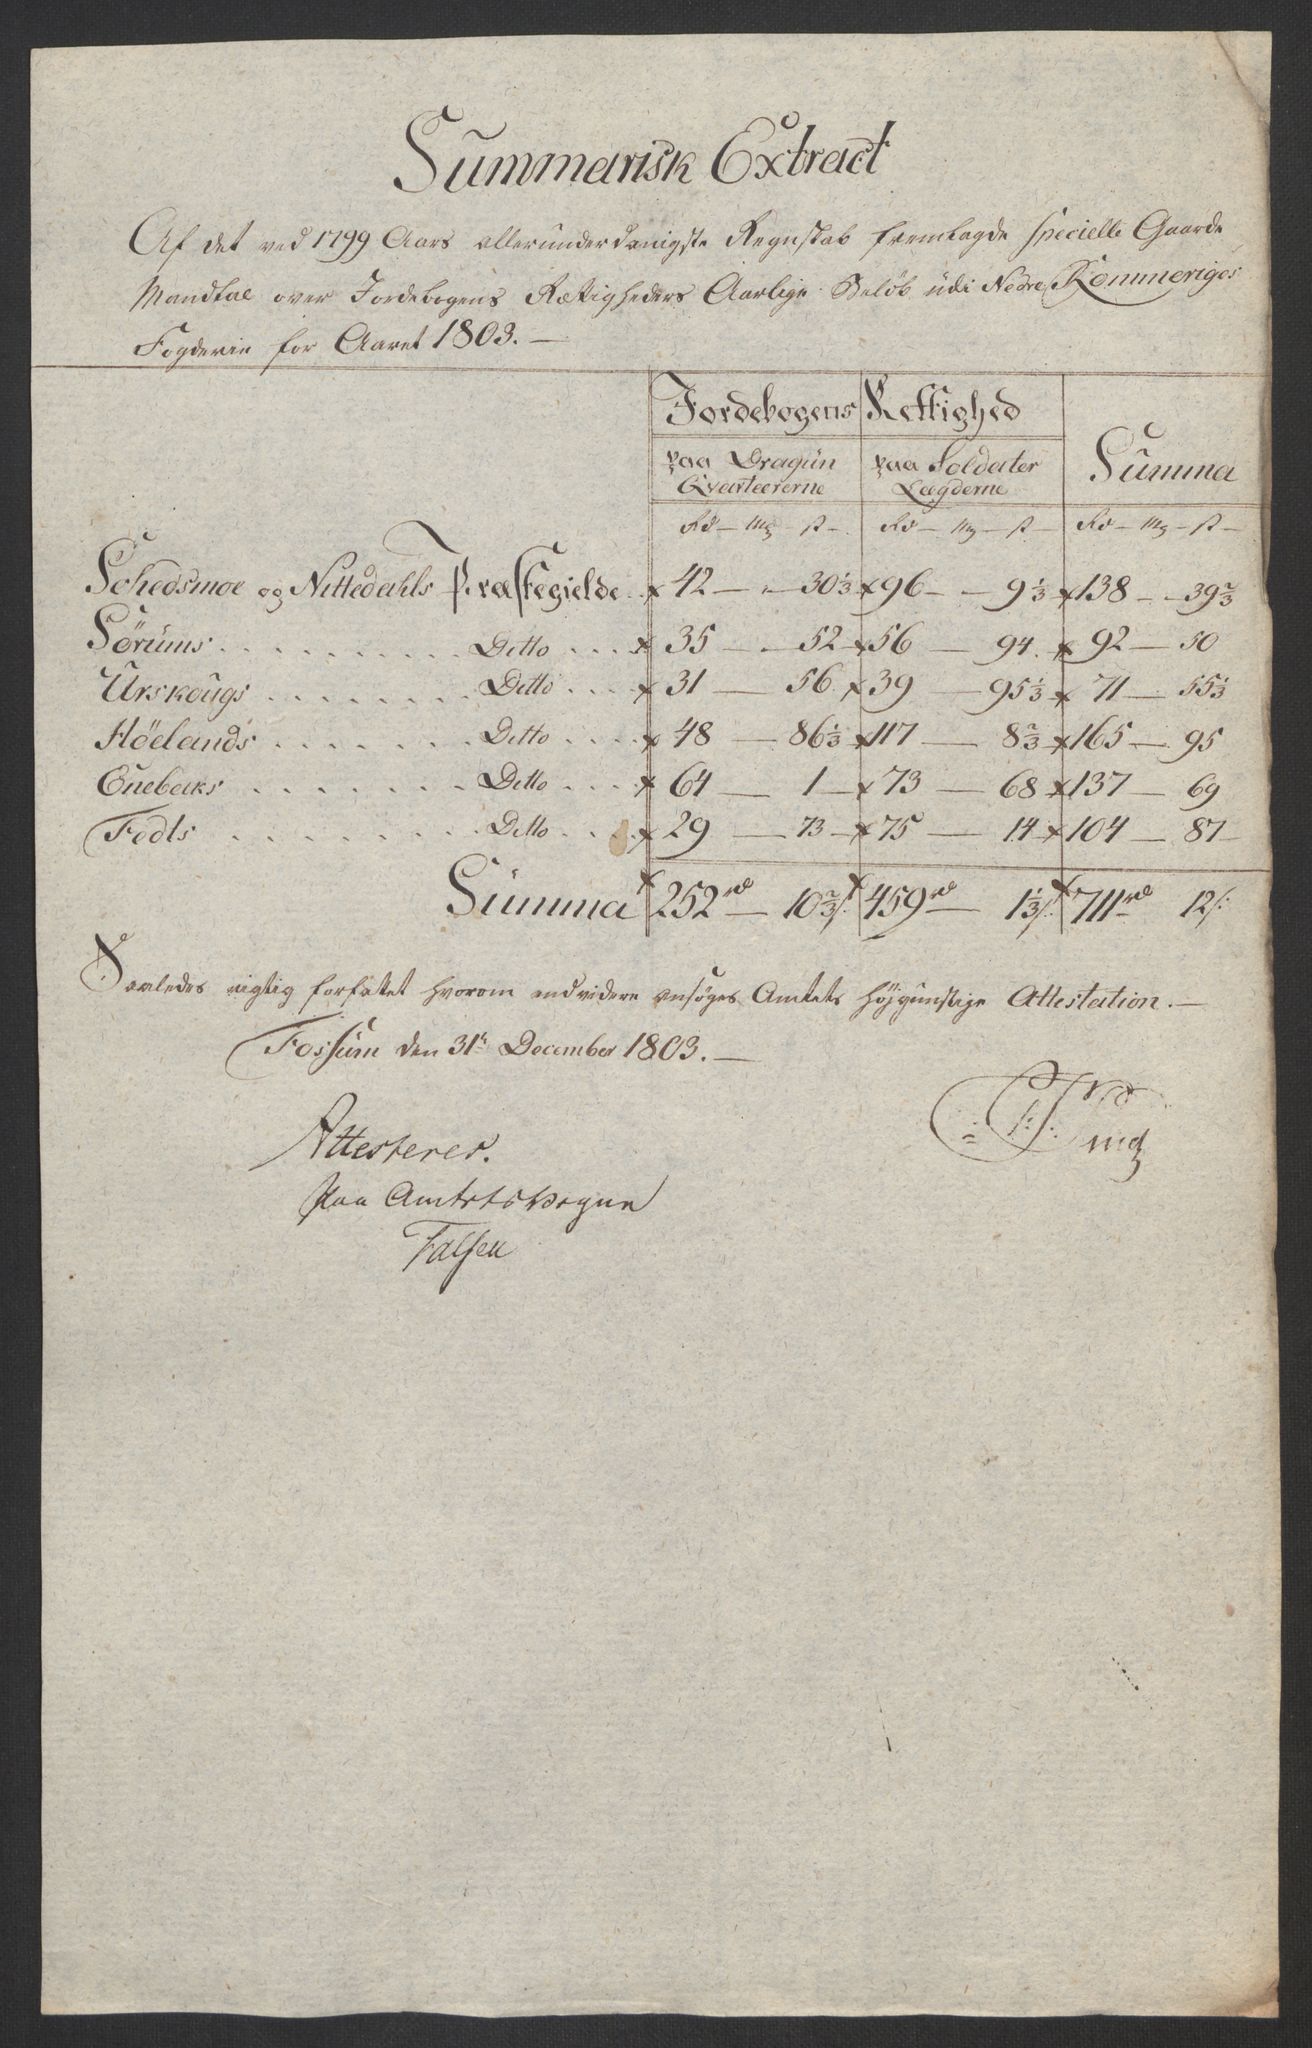 Summarisk Extract
Af det ved 1799 Aars allerunderdanigste Regnskab fremlagde specielle Gaarde
Mandtal over Jordebogens Rættigheders Aarlige Beløb udi Nedre Rommeriges
Fogderie for Aaret 1803. —
Jordebogens Rettighed
paa Dragün Qvarteererne paa Soldater Lægderne Summa
Rd — Mk — s — Rd — Mk — s — Rd — Mk — s —
Schedsmoe og Nittedahls Præstegielde x 42 — - 30 1/3 x 96 - - 9 1/3 x 138 - - 39 2/3
Sørums . . . . . . . . . . Ditto . . . x 35 — - 52 — x 56 — 94. x 92 — 50
Urskougs . . . . . . . . Ditto . . . x 31 — 56. x 39 — 95 1/3 x 71 — 55 1/3
Høelands . . . . . . . Ditto . . . . x 48 — 86 1/3 x 117 — 8 2/3 x 165 — 95
Enebaks . . . . . . . . Ditto . . . x 64 — 1 — x 73 — 68 x 137 — 69
Fedts . . . . . . . . . Ditto . . . x 29 — 73 — x 75 — 14 x 104 — 87 —
Summa x 252 rd — 10 2/3 s: x 459 rd — 1 1/3 s: x 711 rd 12 s:
Saaledes rigtig forfattet hvorom endvidere ansøges Amtets høygunstige Attestation. —
Fossum den 31te December 1803. —
Attesteres.
Paa Amtets vegne
Falsen